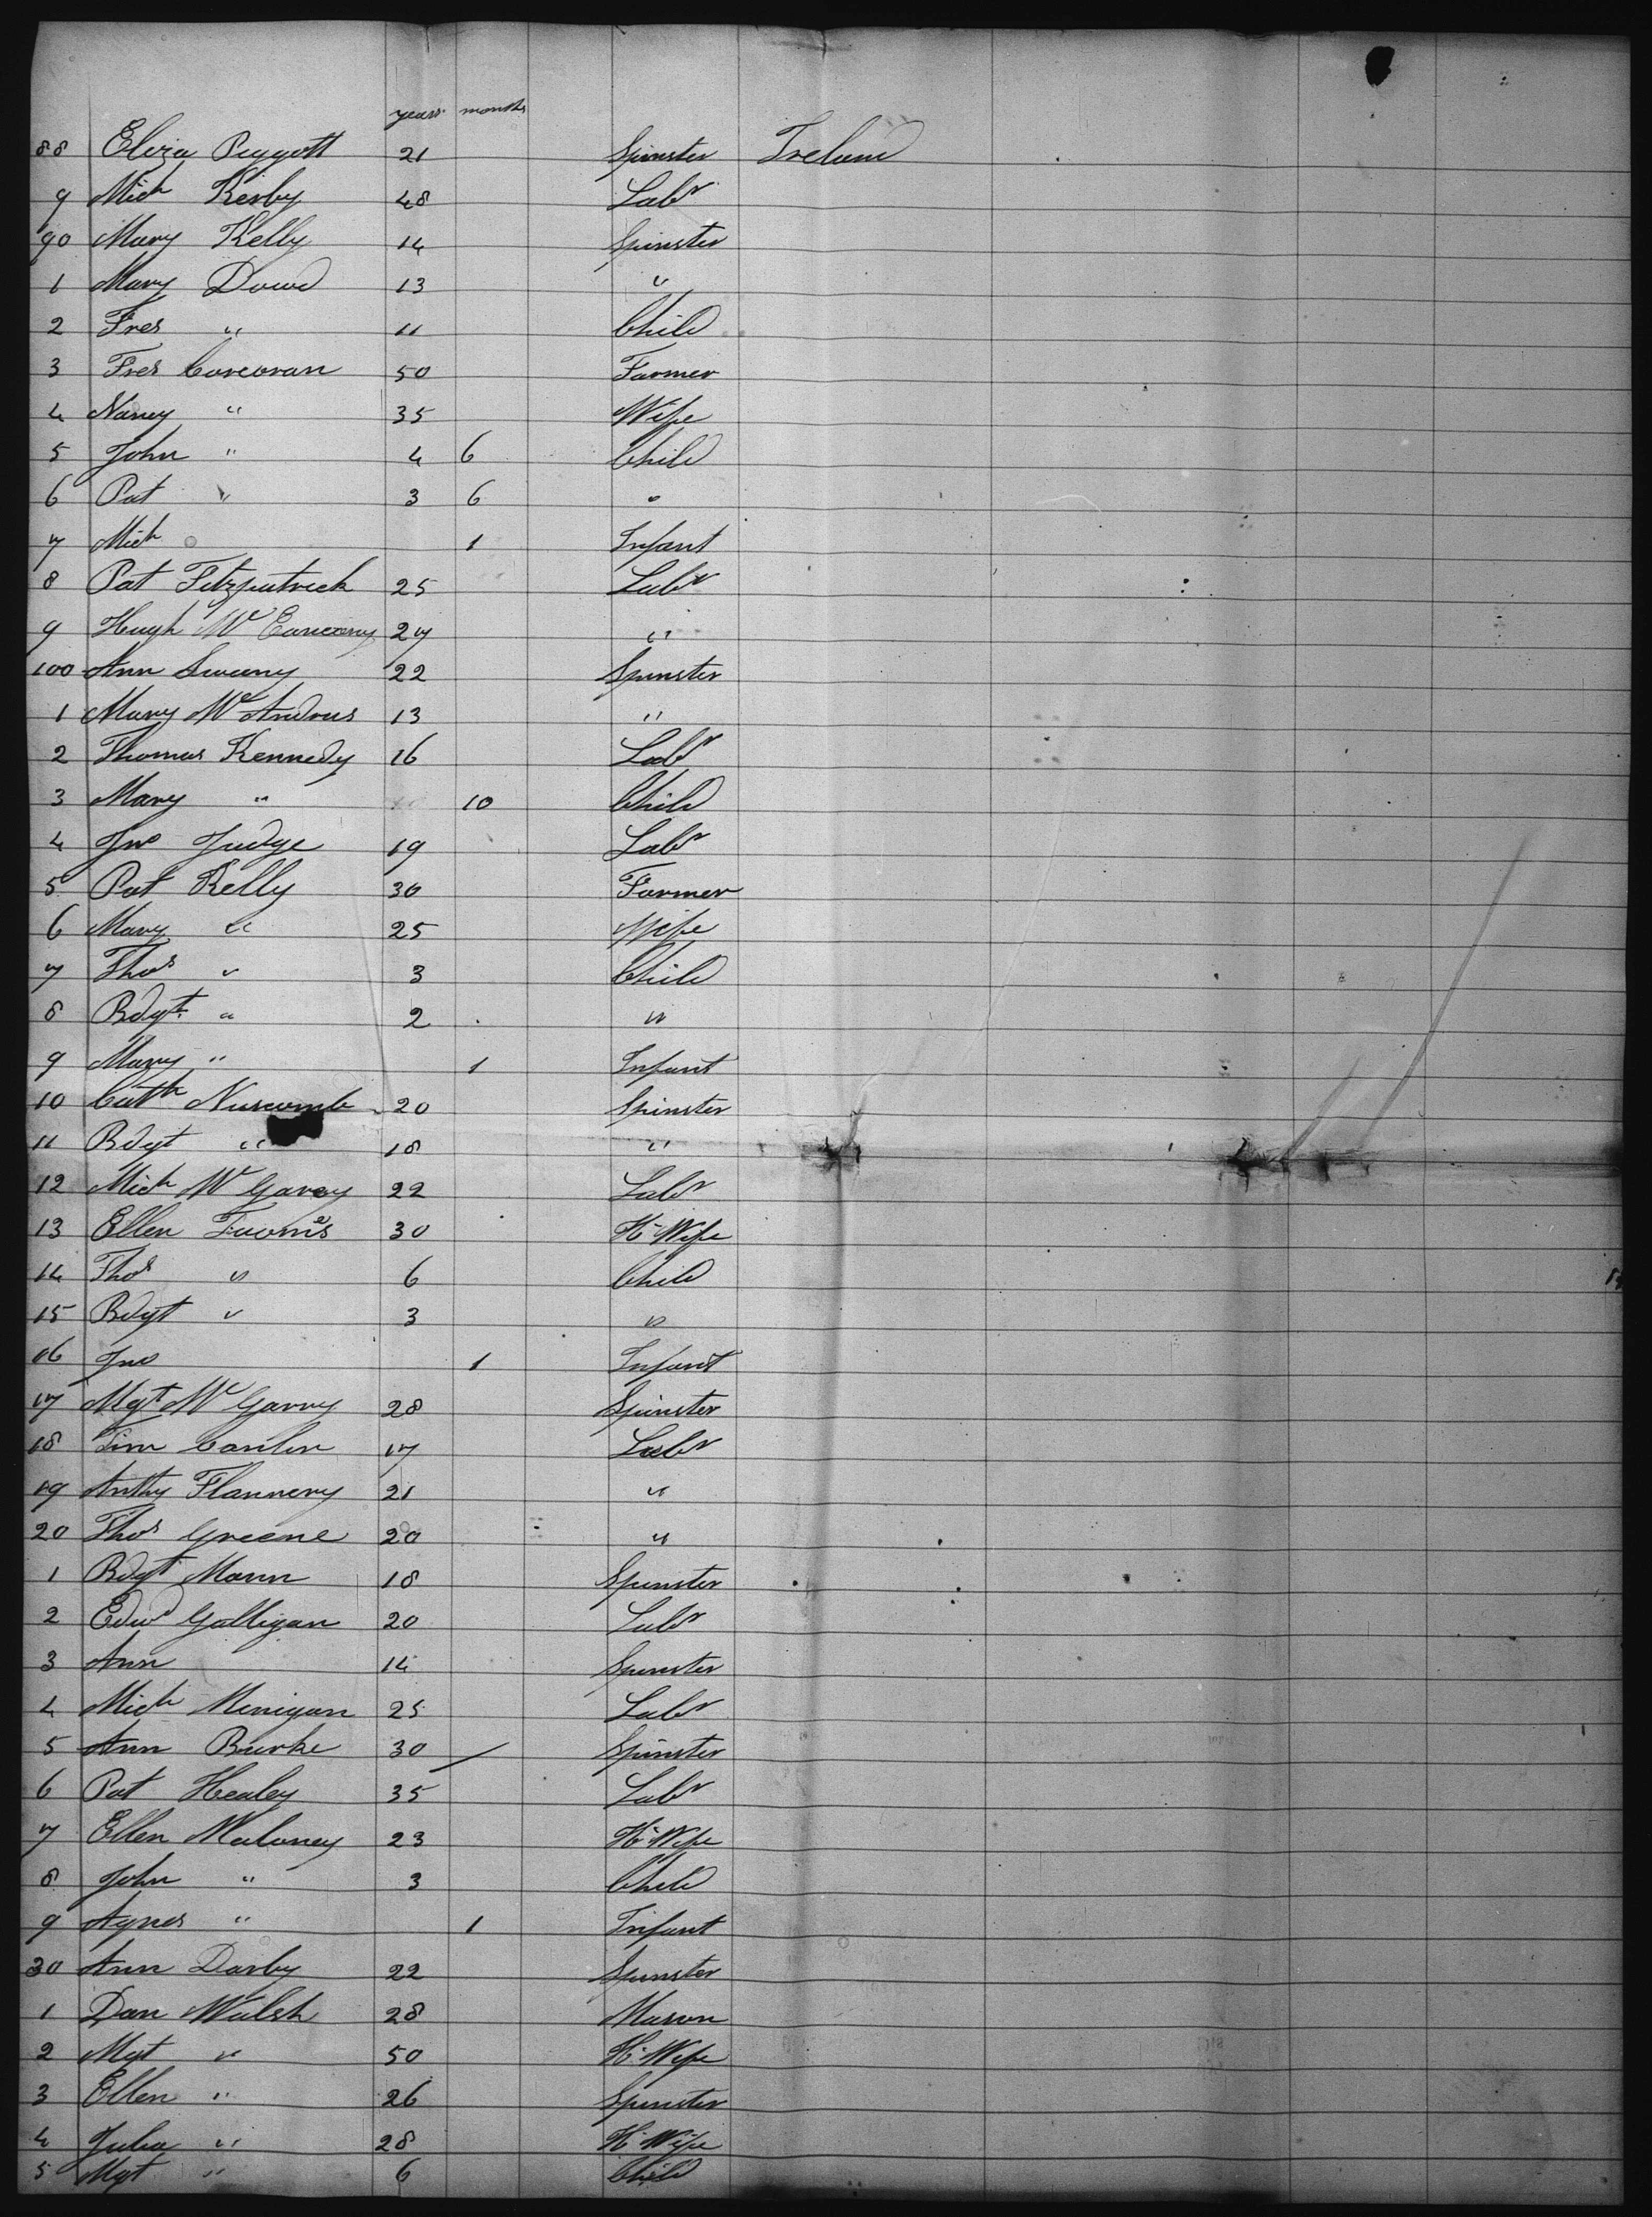 years months
88 Eliza Peggott 21 Spinster Ireland
9 Mich Kerby 48 Labr
90 Mary Kelly 14 Spinster
1 Mary Dowd 13 "
2 Fres " 11 Child
3 Fres Corcoran 50 Farmer
4 Nancy " 35 Wife
5 John " 4 6 Child
6 Pat " 3 6 "
7 Mich 1 Infant
8 Pat Fitzpatrick 25 Labr
9 Hugh Mc 27 "
100 Ann Sweeny 22 Spinster
1 Mary McAndrus 13 "
2 Thomas Kennedy 16 Labr
3 Mary " 10 Child
4 Jno Judge 19 Labr
5 Pat Kelly 30 Farmer
6 Mary " 25 Wife
7 Thos " 3 Child
8 Bdgt " 2 "
9 Mary " 1 Infant
10 Cath Nuscomb 20 Spinster
11 Bdgt " 18 "
12 Mich Mc Garey 22 Labr
13 Ellen 30 H-Wife
14 Thos " 6 Child
15 Bdgt " 3 "
16 Jno 1 Infant
17 Mgt Mc Garry 28 Spinster
18 Tim Conlin 17 Labr
19 Anthy Flannery 21 "
20 Thos Greene 20 "
1 Bdgt Mann 18 Spinster
2 Edwd Galligan 20 Labr
3 Ann 14 Spinster
4 Mich Menigan 25 Labr
5 Ann Burke 30 Spinster
6 Pat Healey 35 Labr
7 Ellen Maloney 23 H-Wife
8 John " 3 Child
9 Agnes " 1 Infant
30 Ann Darby 22 Spinster
1 Dan Walsh 28 Mason
2 Mgt " 50 H-Wife
3 Ellen " 26 Spinster
4 Julia " 28 H-Wife
5 Mgt " 6 Child